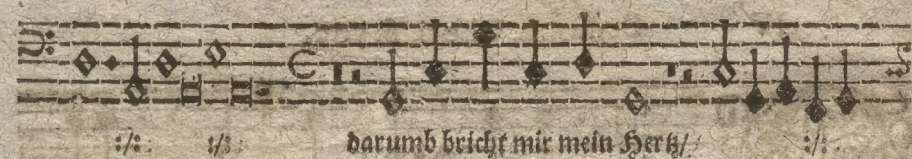 :/: :/: darumb bricht mir mein Hertz/ :/: